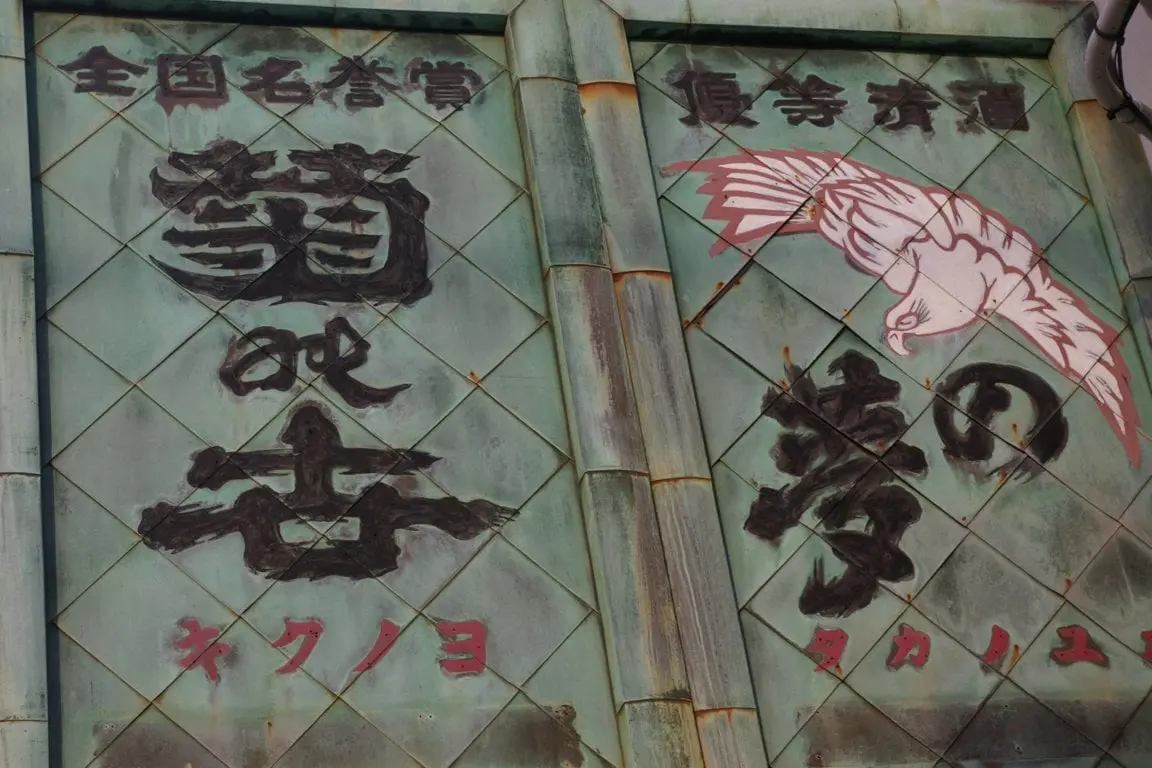 全国名誉賞
菊の世
キクノヨ
優等清酒
の
夢
タカノユ